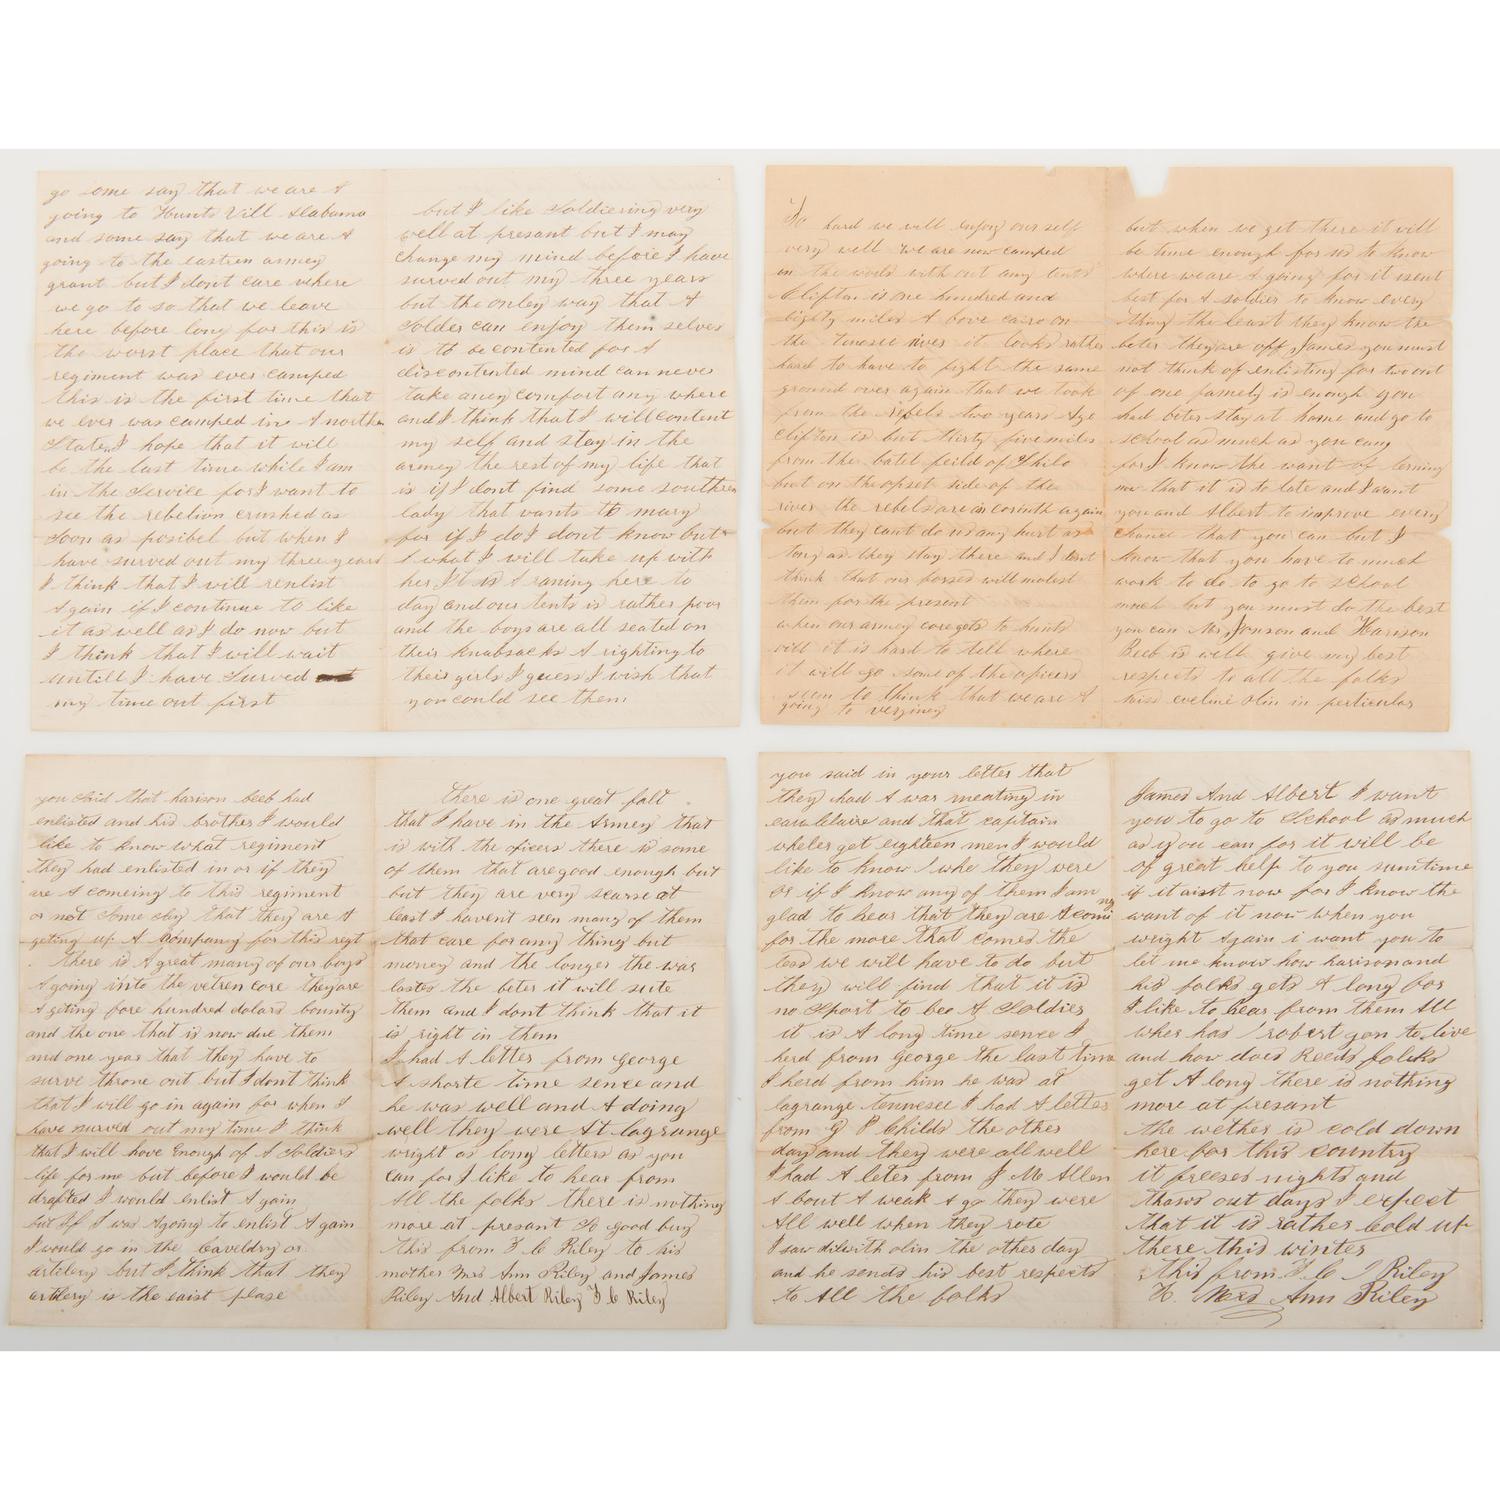 go some say that we are A
going to Hunts Vill Alabama
and some say that we are A
going to the eastren armey
grant but I dont care where
we go to so that we leave
here before long for this is
the worst place that our
regiment was ever camped
this is the first time that
we ever was camped in A northen
State I hope that it will
be the last time while I am
in the Service for I want to
see the rebelion crushed as
Soon as posibel but when I
have surved out my three years
I think that I will renlist
Again if I continue to like
it as well as I do now but
I think that I will wait
untill I have Surved
my time out first
but I like Soldiering very
well at presant but I may
change my mind before I have
surved out my three years
but the onley way that A
Solder can enjoy them selves
is to be contented for A
discontented mind can never
take aney comfort any where
and I think that I will content
my self and stay in the
armey the rest of my life that
is if I dont find some southern
lady that wants to mary
for if I do I dont know but
what I will take up with
her It is A raning here to
day and our tents is rather poor
and the boys are all seated on
their knabsacks A righting to
their girls I guess I wish that
you could see them
hard we will enjoy our self
very well we are now camped
in the wods with out any tents
Clifton is one hundred and
eighty miles A bove cairo on
the Tenesee river it looks rather
hard to have to fight the same
ground over again that we took
from the ribels two years Ago
Clifton is but thirty five miles
from the batel feild of Shilo
but on the opset side of the
river the rebels are in corinth again
but they cant do us any hurt as
long as they stay there and I dont
think that our forses will molest
them for the present
when our armey core gets to hunts
vill it is hard to tell where
it will go some of the oficers
seem to think that we are A
going to verginey
but when we get there it will
be time enough for us to know
where we are A going for it isent
best for A soldier to know every
thing the least they know the
beter they are off James you must
not think of enlisting for two out
of one famely is enough you
had beter stay at home and go to
school as much as you can
for I know the want of lerning
now that it is to late and I want
you and Albert to improve every
chance that you can but I
know that you have to much
work to do to go to School
much but you must do the best
you can Mr Jonson and Harison
Beeb is well give my best
respects to all the folks
miss eveline Olin in perticular
you said that harison beeb had
enlisted and his brother I would
like to know what regiment
they had enlisted in or if they
are A comeing to this regiment
or not Some say that they are A
geting up A Company for this regt
there is A great many of our boys
A going into the vetren core they are
A geting fore hundred dolars bounty
and the one that is now due them
and one year that they have to
surve throne out but I dont think
that I will go in again for when I
have surved out my time I think
that I will have enough of A Soldiers
life for me but before I would be
drafted I would enlist Again
but If I was Agoing to enlist A gain
I would go in the Caveldry or
artilery but I think that they
artilery is the eaist plase
there is one great falt
that I have in the Armey that
is with the oficers there is some
of them that are good enough but
but they are very scarse at
least I havent seen many of them
that care for any thing but
money and the longer the war
lastes the beter it will sute
them and I dont think that it
is right in them
I had A letter from george
A shorte time sence and
he was well and A doing
well they were At lagrange
wright as long letters as you
can for I like to hear from
All the folks there is nothing
more at presant So good buy
this from F C Riley to his
mother Mrs Ann Riley and James
Riley And Albert Riley F C Riley
you said in your letter that
they had A war meating in
eau Claire and that captain
wheler get eighteen men I would
like to know who they were
or if I know any of them I am
glad to hear that they are A coming
for the more that comes the
less we will have to do but
they will find that it is
no Sport to bee A Soldier
it is A long time sence I
herd from george the last time
I herd from him he was at
lagrange tennesee I had A letter
from G P Childs the other
day and they were all well
I had A leter from J Mc Allen
A bout A weak A go they were
All well when they rote
I saw dilwith olin the other day
and he sends his best respects
to All the folks
James And Albert I want
you to go to School as much
as you can for it will be
of great help to you sumtime
if it aisit now for I know the
want of it now when you
wright Again i want you to
let me know how harison and
his folks gets A long for
I like to hear from them All
wher has robert gon to live
and how does Reeds folks
get A long there is nothing
more at presant
the wether is cold down
here for this country
it freeses nights and
thaws out days I expect
that it is rather Cold up
there this winter
this from F C Riley
to Mrs Ann Riley